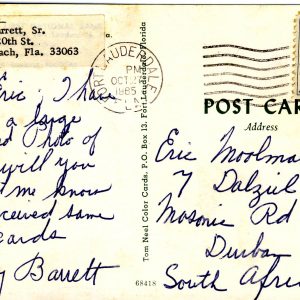 arrett, Sr.
20th St.
ach, Fla. 33063
Eric, I have
a large
Photo of
will you
me know
ceived same
cards
Barrett
FORT LAUDERDALE
PM
OCT
1985
Tom Neel Color Cards. P.O. Box 13. Fort Lauderdale, Florida
68418
POST CAR
Address
Eric Moolma
7 Dalziel
Masonic Rd
Durba
South Afri